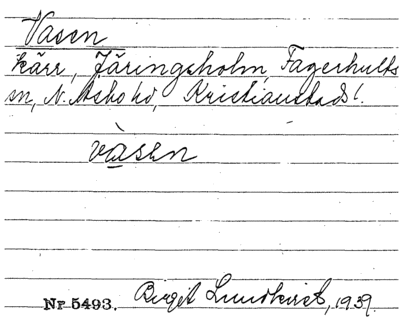 Vasen
kärr, Järingsholm, Fagerhults
sn, N. Åsbo hd, Kristianstads l.
và̱sen
Nr 5493. Birgit Lundkvist, 1939.